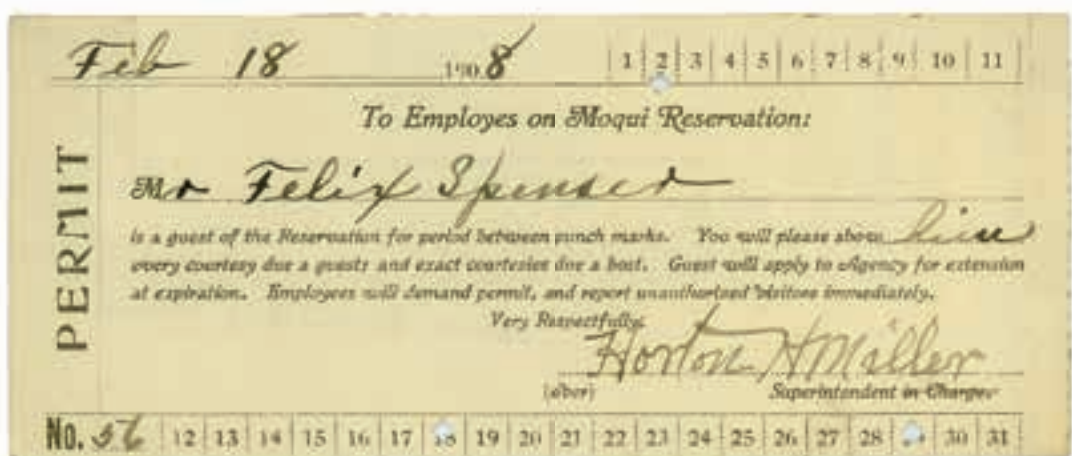 Feb 18 1908 1 2 3 4 5 6 7 8 9 10 11
To Employes on Moqui Reservation:
PERMIT
Mr Felix Spenser
is a guest of the Reservation for period between punch marks. You will please show him
every courtesy due a guests and exact courtesies due a host. Guest will apply to Agency for extension
at expiration. Employees will demand permit, and report unauthorized visitors immediately.
Very Respectfully,
Horton H Miller
(over) Superintendent in Charge.
No. 56 12 13 14 15 16 17 18 19 20 21 22 23 24 25 26 27 28 29 30 31